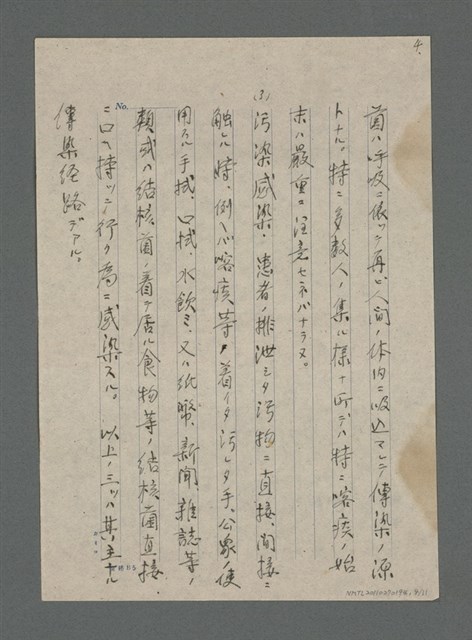 4.
菌ハ呼吸ニ依ッテ再ビ人間ノ体内ニ吸込マレテ傳染ノ源
トナル。特ニ多数人ノ集ル様ナ所デハ特ニ喀痰ノ始
末ハ嚴重ニ注意セネバナラヌ。
(3) 汚染感染、患者ノ排泄シタ汚物ニ直接、間接ニ
触レル時、例ヘバ喀痰等ノ着イタ汚レタ手、公衆ノ使
用スル手拭、口拭、水飲ミ、又ハ紙幣、新聞、雜誌等ノ
類或ハ結核菌ノ着テ居ル食物等ノ結核菌直接
ニ口ヘ持ッテ行ク為ニ感染スル。 以上ノ三ツハ其ノ主ナル
傳染経路デアル。
No.
NMTL20110270196, 4/11